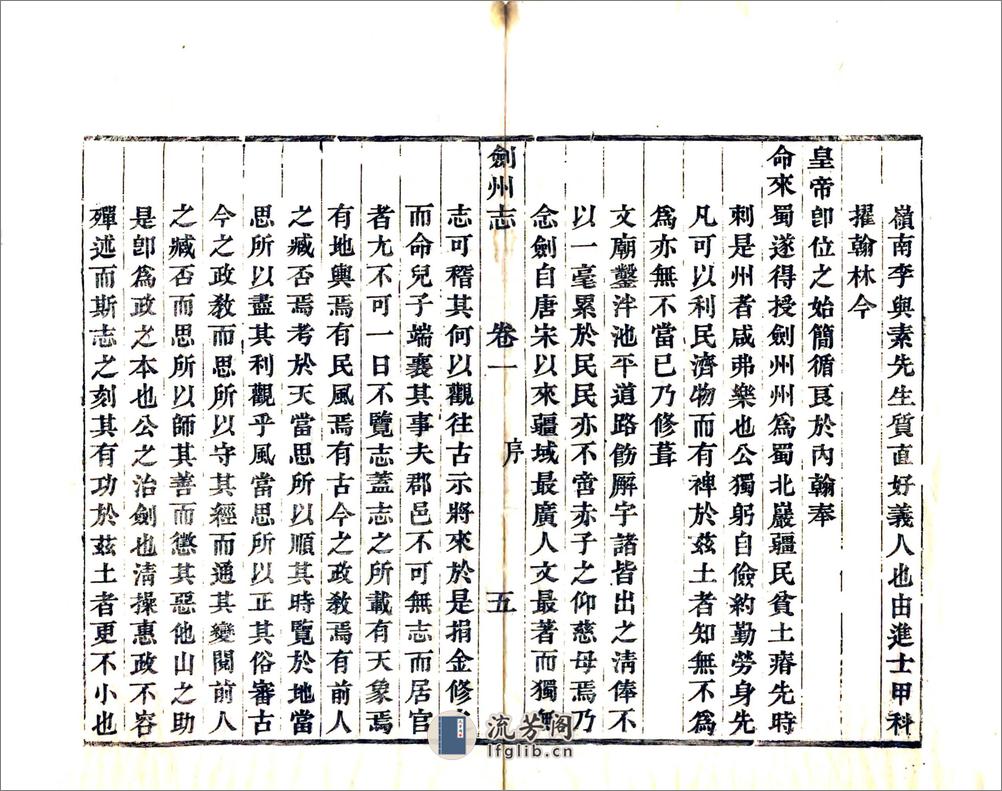 嶺南李與素先生質直好義人也由進士甲科
擢翰林今
皇帝卽位之始簡循良於內翰奉
命來蜀遂得授劍州州爲蜀北巖疆民貧土瘠先時
刺是州者咸弗樂也公獨躬自儉約勤勞身先
凡可以利民濟物而有裨於茲土者知無不爲
爲亦無不當已乃修葺
文廟鑿泮池平道路飭廨宇諸皆出之淸俸不
以一毫累於民民亦不啻赤子之仰慈母焉乃
念劍自唐宋以來疆域最廣人文最著而獨無
劍州志 卷一 序 五
志可稽其何以觀往古示將來於是捐金修
而命兒子端襄其事夫郡邑不可無志而居官
者尤不可一日不覽志蓋志之所載有天象焉
有地輿焉有民風焉有古今之政敎焉有前人
之臧否焉考於天當思所以順其時覽於地當
思所以盡其利觀乎風當思所以正其俗審古
今之政敎而思所以守其經而通其變閱前人
之臧否而思所以師其善而懲其惡他山之助
是卽爲政之本也公之治劍也淸操惠政不容
殫述而斯志之刻其有功於茲土者更不小也
流芳阁
lfglib.cn